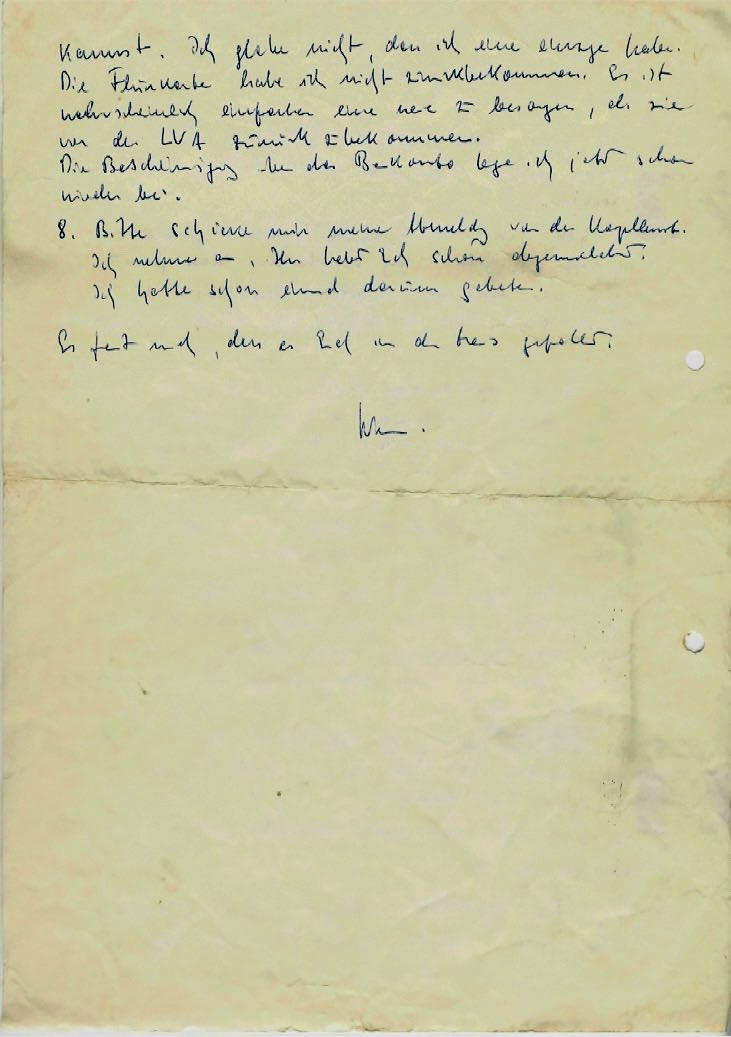 kannst. Ich glaube nicht, dass ich eine einzige habe.
Die Flurkarte habe ich nicht zurückbekommen. Es ist
wahrscheinlich einfacher eine neue zu besorgen, als sie
von der LVA zurück zu bekommen.
Die Bescheinigung über das Baukonto lege ich jetzt schon
wieder bei.
8. Bitte schicke mir meine Abmeldung von der
Ich nehme an, Ihr habt Euch schon abgemeldet.
Ich hatte schon einmal darum gebeten.
Es freut mich, dass es Euch in der gefällt.